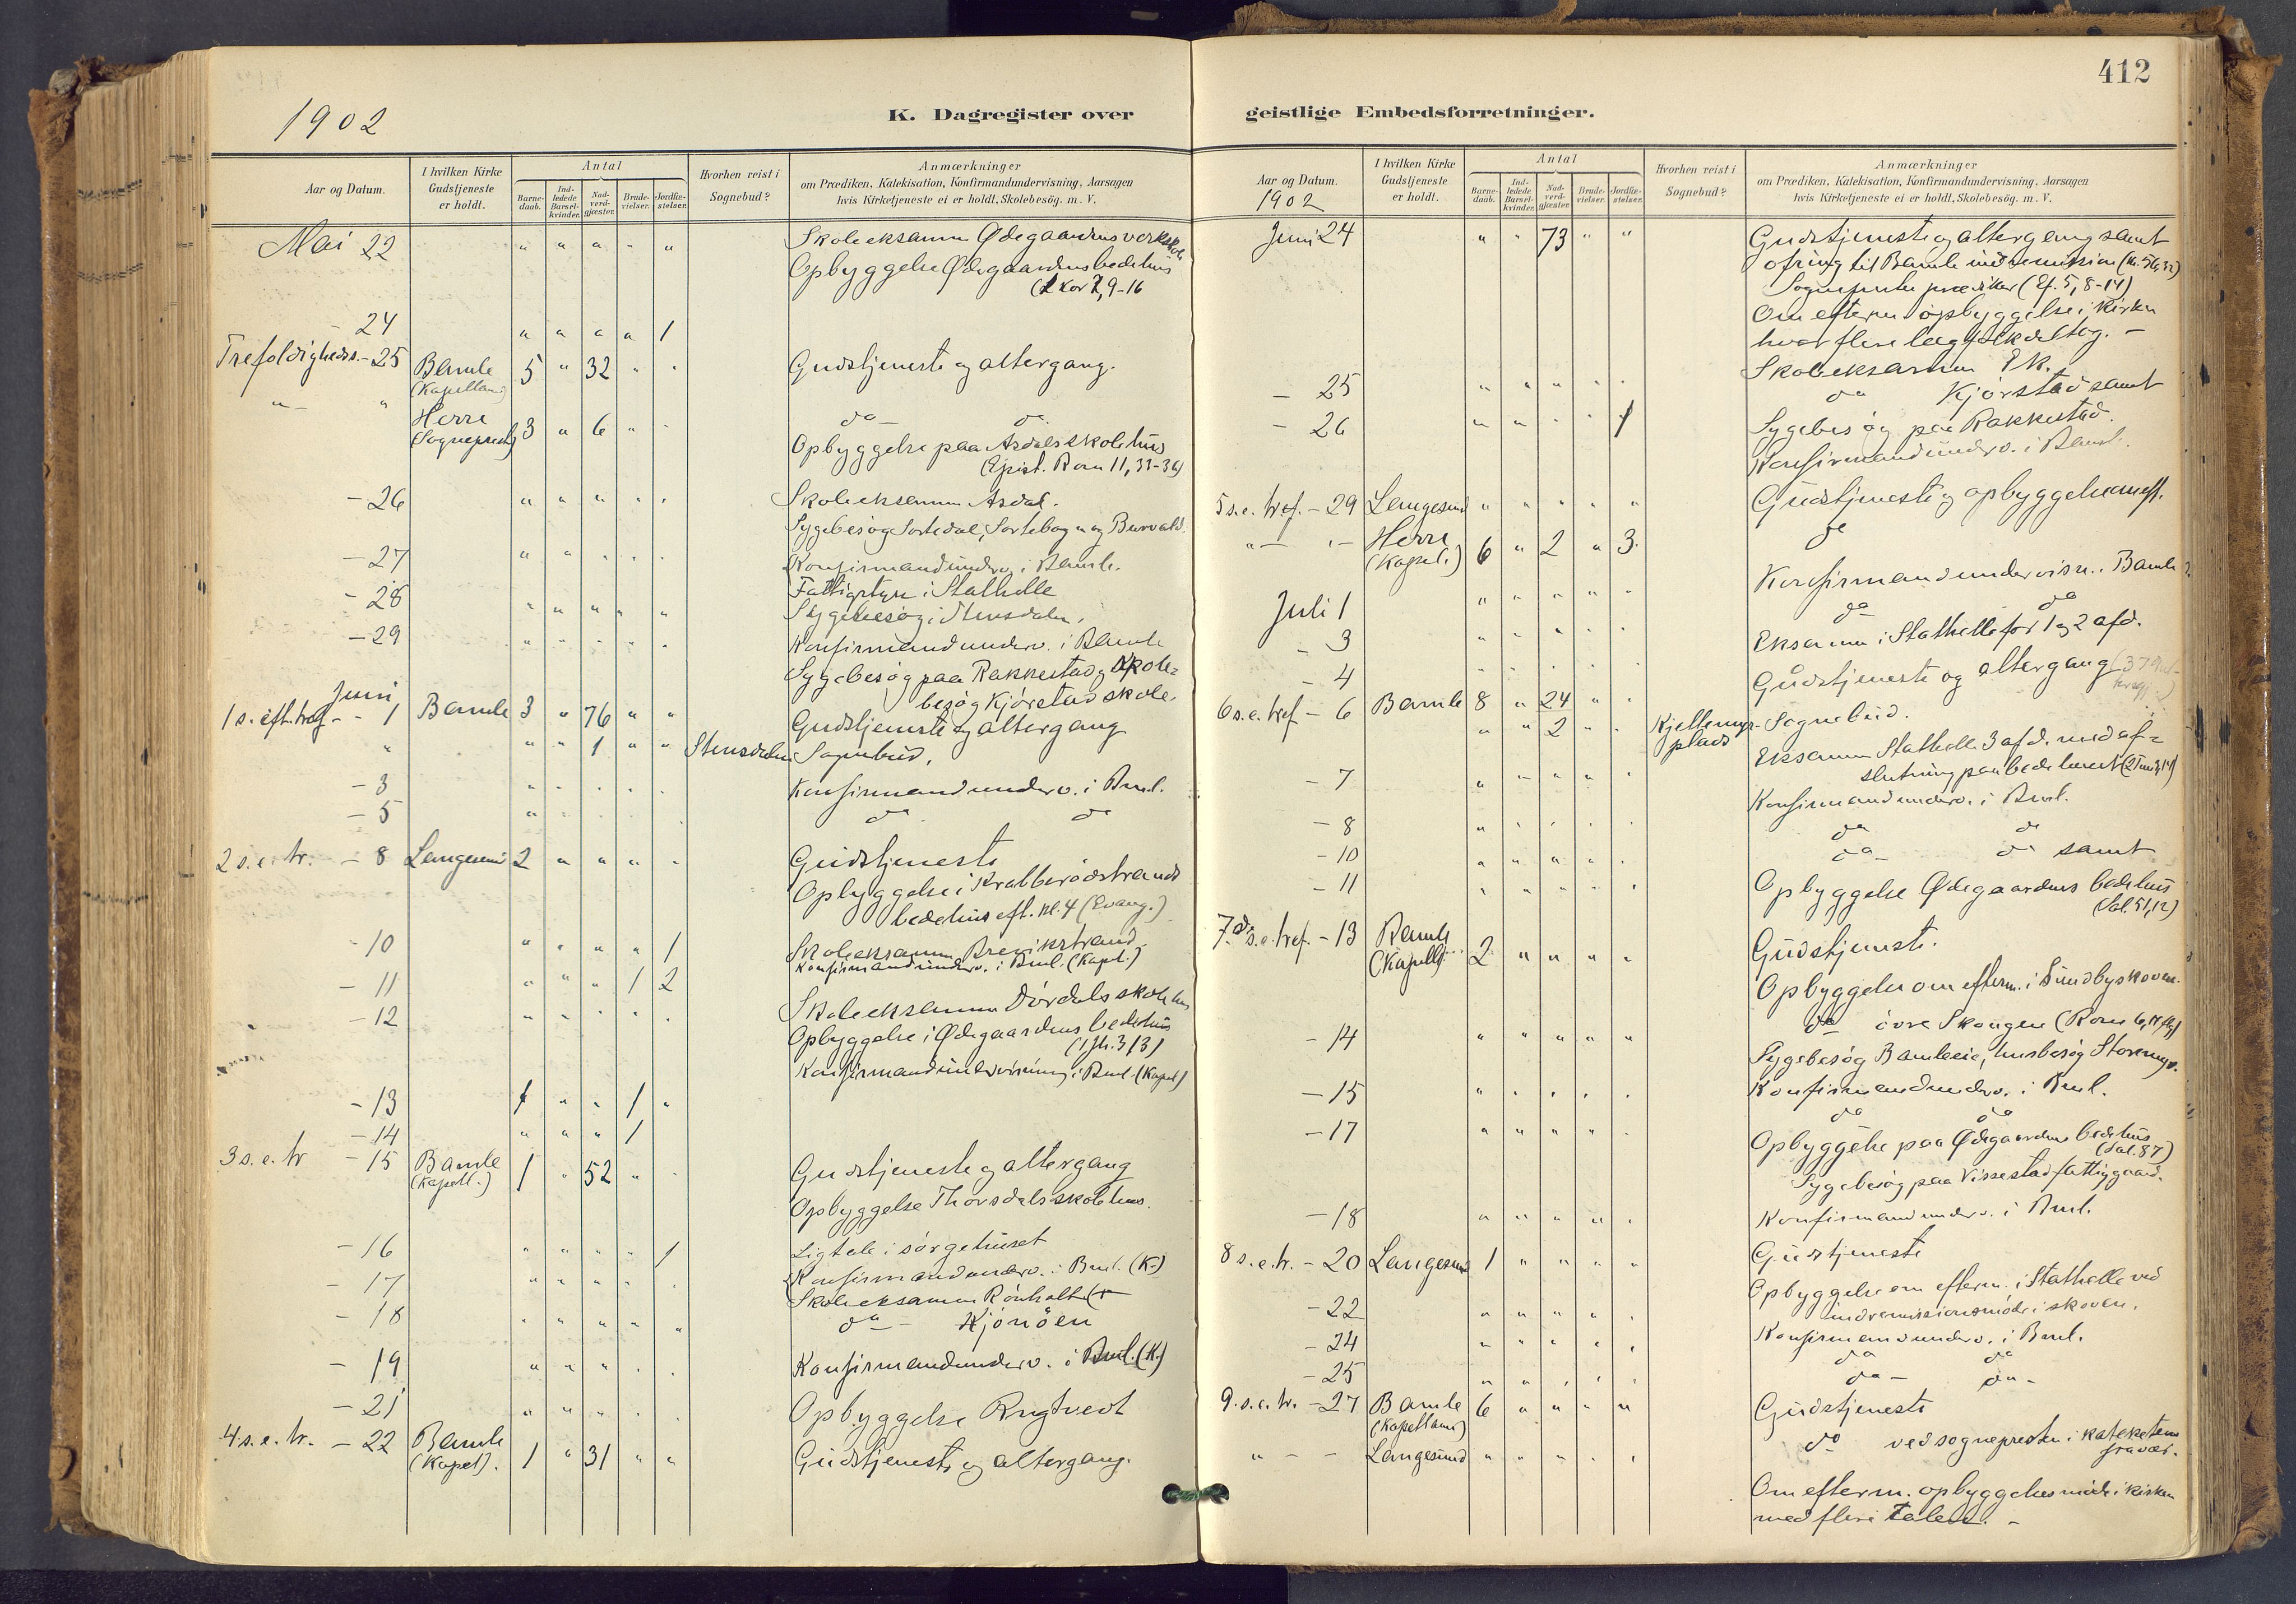 1902
K. Dagregister over
Aar og Datum.
I hvilken Kirke Gudstjeneste er holdt.
Antal
Barnedaab.
Indledede Barselkvinder.
Nadverdgjæster.
Brudevielser.
Jordfæstelser.
Hvorhen reist i Sognebud?
Anmærkninger
om Prædiken, Katekisation, Konfirmandundervisning, Aarsagen
hvis Kirketjeneste ei er holdt, Skolebesög. m. V.
Mai 22 " " " " " Skoleeksamen Ødegaardens verk skole
Opbyggelse Ødegaardens bedehus
(2 Kor 7, 9-16
- 24 " " " " 1
Trefoldigheds. - 25 Bamle 5 " 32 " " Gudstjeneste og altergang.
(Kapellan)
" - " Herre 3 " 6 " " do - do
(Sogneprest)
Opbyggelse paa Asdals skolehus
(Epist. Rom 11, 33-36)
- 26 " " " " " Skoleeksamen Asdal.
Sygebesøg Sortedal, Sortebogen og Burvald.
- 27 " " " " " Konfirmandunderv. i Bamle.
- 28 Fattigstyre i Stathelle
" " " " " Sygebesøg i Stensdalen.
- 29 " " " " " Konfirmandunderv. i Bamle
Sygebesøg paa Rakkestad og skole=
Juni besøg Kjørstad skole.
1 s. eft. tref - - 1 Bamle 3 " 76 " " Gudstjeneste og altergang
" " " 1 " " Stensdalen Sognebud.
- 3 " " " " " Konfirmandunderv. i Bml.
- 5 " " " " " do do
2 s. e. tr. - 8 Langesund 2 " " " " Gudstjeneste
Opbyggelse i Krabberødstrands
bedehus eft. kl. 4 (Evang.)
- 10 " " " " 1 Skoleeksamen Brevikstrand
Konfirmandunderv. i Bml. (Kapel.)
- 11 " " " 1 2
- 12 " " " " " Skoleeksamen Dördals skolehus
Opbyggelse i Ødegaardens bedehus
(1 Jh. 3, 3)
Konfirmandundervisning i Bml. (Kapel)
- 13 1 " " 1 "
- 14 " " " 1
3 s. e. tr - 15 Bamle 1 " 52 " " Gudstjeneste og altergang
(Kapell.)
Opbyggelse Thorsdals skolehus.
- 16 " " " " 1 Ligtale i sørgehuset
- 17 " " " " " Konfirmandunderv. i Bml. (K.)
Skoleeksamen Rönholt
- 18 " " " " " do - Kjönöen
- 19 " " " " " Konfirmandunderv. i Bml. (K.)
- 21 " " " " " Opbyggelse Rugtvedt
4 s. e. tr. - 22 Bamle 1 " 31 " " Gudstjeneste og altergang.
(Kapel).
412
geistlige Embedsforretninger.
Aar og Datum.
1902
I hvilken Kirke Gudstjeneste er holdt.
Antal
Barnedaab.
Indledede Barselkvinder.
Nadverdgjæster.
Brudevielser.
Jordfæstelser.
Hvorhen reist i Sognebud?
Anmærkninger
om Prædiken, Katekisation, Konfirmandundervisning, Aarsagen
hvis Kirketjeneste ei er holdt, Skolebesög. m. V.
Juni 24 " " 73 " " Gudstjeneste og altergang samt
ofring til Bamle indremission
Sognepresten prædiker (Ef. 5, 8-14)
Om efterm opbyggelse i kirken
hvor flere lægfolk deltog. -
- 25 " " " " " Skoleeksamen Ek.
- 26 " " " " 1 do Kjørstad samt
Sygebesøg paa Rakkestad.
Konfirmandunderv. i Bamle.
5 s. e. tref. - 29 Langesund " " " " " Gudstjeneste og opbyggelse om eft.
" - " - Herre 6 " 2 " 3 do
(Kapel.)
Juli 1 " " " " " Konfirmandundervisn. Bamle
- 3 " " " " " do do
- 4 " " " " " Eksamen i Stathelle for 1 og 2 afd.
6 s. e. tref - 6 Bamle 8 " 24 " " Gudstjeneste og altergang
" " 2 " " Kjellemyrplads Sognebud.
- 7 " " " " " Eksamen Stathelle 3 afd. med af=
slutning paa bedehuset
- 8 " " " " " Konfirmandunderv. i Bml.
- 10 " " " " " do do
- 11 " " " " " do - do samt
Opbyggelse Ødegaardens bedehus
(Sal. 51, 12)
7. s. e. tref. - 13 Bamle 2 " " " " Gudstjeneste.
(Kapell)
Opbyggelse om efterm. i Sundbyskoven.
- 14 " " " " " do övre Skougen
Sygebesøg Bamleeie, husbesøg Storemyr.
- 15 " " " " " Konfirmandunderv. i Bml.
- 17 " " " " " do do
Opbyggelse paa Ødegaardens bedehus
(Sal. 87)
Sygebesøg paa Vissestad fattiggaard.
- 18 " " " " " Konfirmandunderv. i Bml.
8 s. e. tr. - 20 Langesund 1 " " " " Gudstjeneste
Opbyggelse om efterm. i Stathelle ved
indremissionsmöde i skoven.
- 22 " " " " " Konfirmandunderv. i Bml.
- 24 " " " " " do do
- 25 " " " " " do - do -
9. s. e. tr. - 27 Bamle 6 " " " " Gudstjeneste
(Kapellanen)
" - - Langesund " " " " " do ved sognepresten i katekatens
fravær.
Om efterm. opbyggelsesmöde i kirken
med flere talere. -